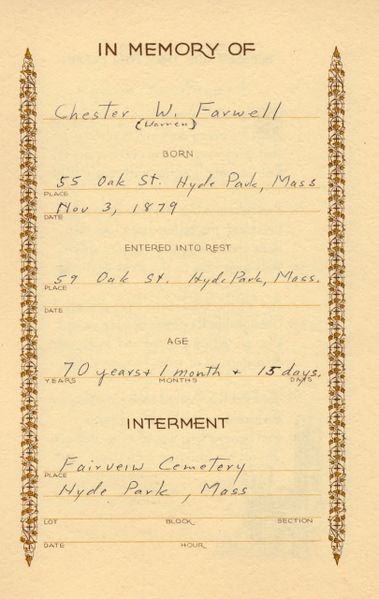 IN MEMORY OF
Chester W. Farwell
(Warren)
BORN
55 Oak St. Hyde Park, Mass
PLACE
Nov 3, 1879
DATE
ENTERED INTO REST
59 Oak St. Hyde Park, Mass.
PLACE
DATE
AGE
70 years + 1 month + 15 days.
YEARS MONTHS DAYS
INTERMENT
Fairveiw Cemetery
PLACE
Hyde Park, Mass
LOT BLOCK SECTION
DATE HOUR